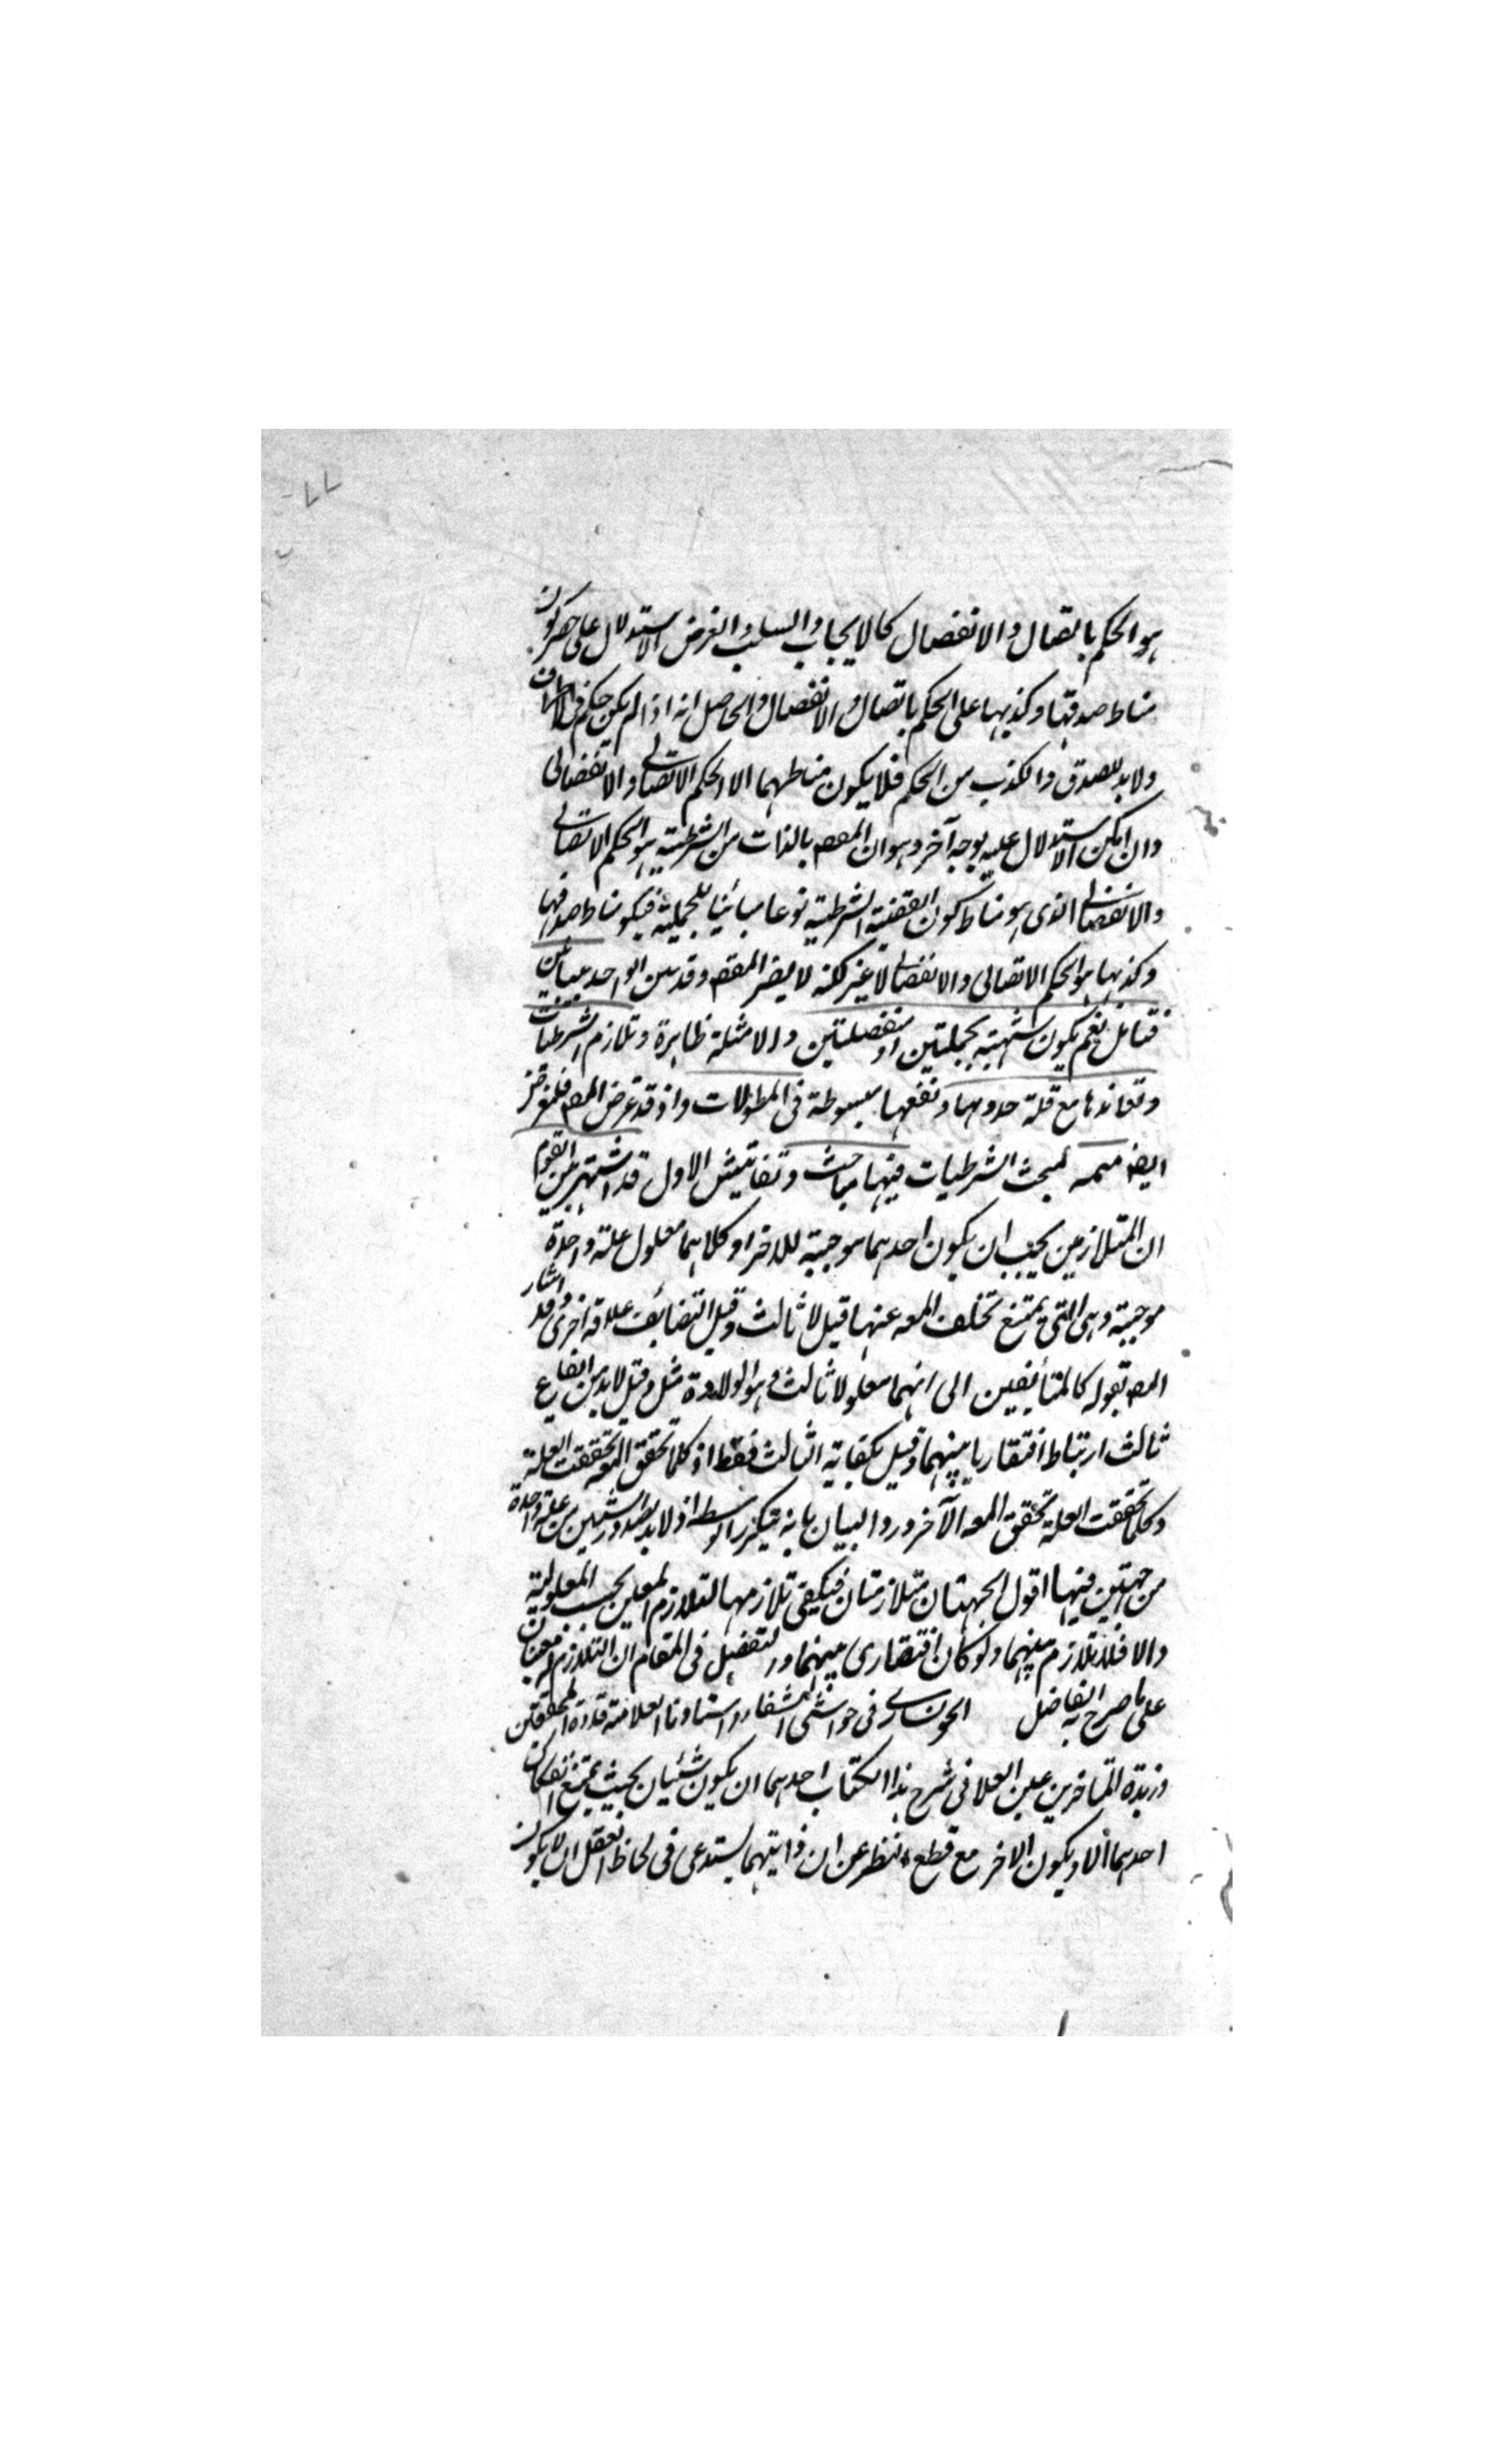 هو الحكم باتصال والانفصال كالايجاب والسلب والغرض الاستدلال على حصر كون
مناط صدقها وكذبها على الحكم باتصال والانفصال والحاصل انه اذا لم يكن حكم فى الاطراف
ولابد للصدق والكذب من الحكم فلا يكون مناطهما الا الحكم الاتصالى والانفصالى
وان امكن الاستدلال عليه بوجه آخر وهو ان المقصم بالذات من الشرطية هو الحكم الاتصالى
والانفصالى الذى هو مناط كون القضية الشرطية نوعا مبائنا للحملية فيكون مناط صدقها
وكذبها هو الحكم الاتصالى والانفصالى لا غير لكنه لا يضر المقصم وقد بين الواحد
فتامل نعم يكون شبيهة بحمليتين او منفصلتين والامثلة ظاهرة وتلازم الشرطيات
وتعاندها مع قلة جدوىها ونفعها مبسوطة فى المطولات واذ قد غرض المص
ايضا تتمه لمبحث الشرطيات فيها مباحث وتفاتيش الاول قد اشتهر بين القوم
ان المتلازمين يجب ان يكون احدهما موجبة للاخر او كلاهما معلول علة واحدة
موجبة وهى التى يمتنع تخلف المعه عنها قيل لا ثالث وقيل التضائف علاقة اخرى وقد اشار
المص بقوله كالمتضائفين الى انهما معلولا ثالث وهو الولادة مثل وقيل لابد من ايقاع
ثالث ارتباط افتقاريا بينهما وقيل بكفاية الثالث فقط اذ كلما تحقق المعه تحققت العلة
وكلما تحققت العلة تحقق المعه الآخر ورد البيان بانه يتكرر الوسط اذ لابد لصدور الشيئين من علة واحدة
من جهتين فيها اقول الجهتان متلازمتان فيكفى تلازمها لتلازم المعلين بحسب المعلولية
والا فلا تلازم بينهما ولو كان افتقارى بينهما والتفصيل فى المقام ان التلازم له معنيان
على ما صرح به الفاضل الخونسارى فى حواشى الشفا واستاذنا العلامة قدوة المحققين
وزبدة المتاخرين عين العلا فى شرح هذا الكتاب احدهما ان يكون شيئيان بحيث يمتنع انفكاك
احدهما الا ويكون الاخر مع قطع النظر عن ان ذاتيتهما يستدعى فى لحاظ العقل ان لا يكون